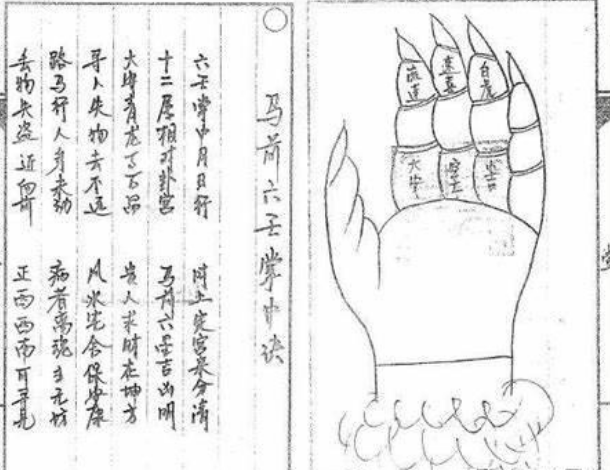 马前六壬掌中诀
六壬掌中月日行 时上定宫要分清
十二层相对卦宫 马前六壬吉凶明
大安青龙了百品 贵人求财在坤方
寻人失物去不远 风水宅舍保安康
路马行人身未动 病者离魂主无妨
丢物失盗近向前 正西西南可寻见
流连 速喜 白虎
大安 空亡 小吉